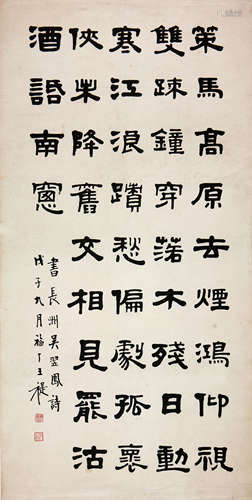 策馬高原去煙鴻仰視
雙疎鐘穿落木殘日動
寒江浪蹟愁偏劇孤褱
俠未降舊交相見罷沽
酒話南窻
書長洲吳翌鳳詩
戊子九月福厂王禔